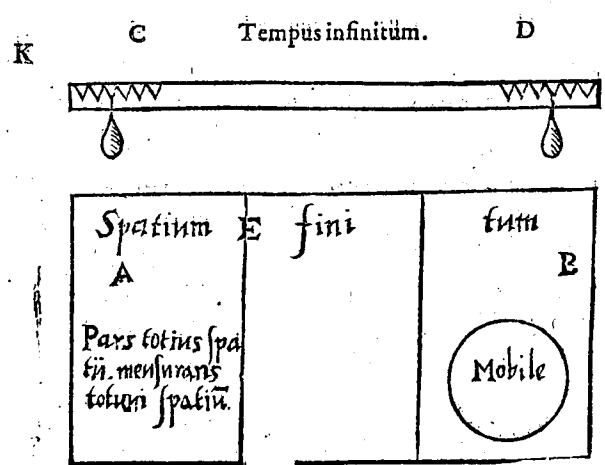 K C Tempus infinitum. D
Spatium E fini tum
A B
Pars totius ſpa
tii. menſurans
totum ſpatiū.
Mobile